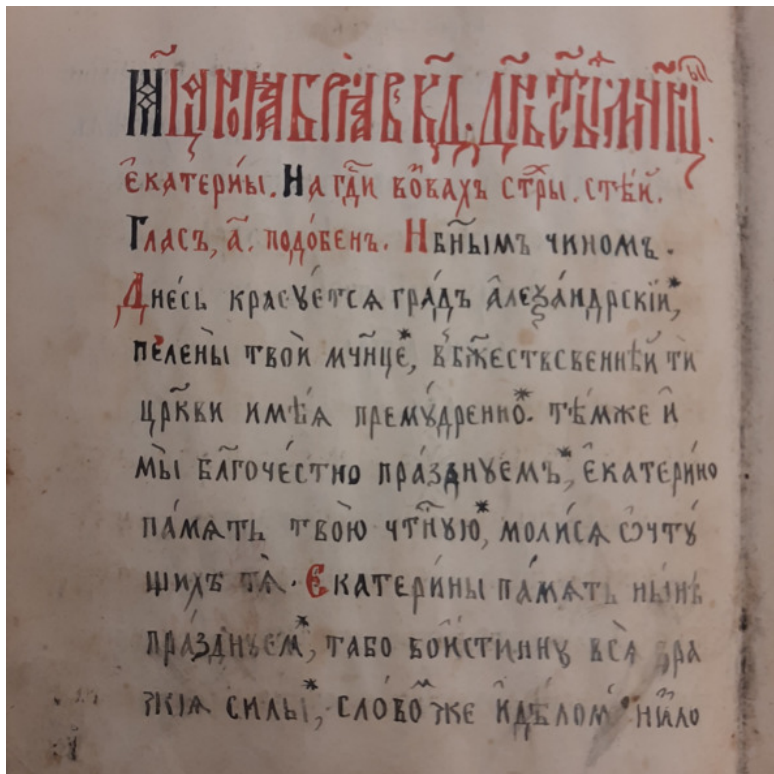 Мц҃а ноѧбрїѧ в к҃д. дн҃ь ст҃ыѧ мч҃нцы
є҆катерины. На гд҇и во́звахъ ст҇ры. ст҃ѣ́й.
Гласъ, а҃. подо́бенъ. Нбⷭ҇ныхъ чиномъ.
Дне́сь красꙋ́етсѧ гра́дъ а҆леѯа́ндрскїй,*
пелены̀ твоѝ мч҃нце,* в бж҃ественнѣй ти
цр҃кви имѣ́ѧ премꙋ́дренно.* тѣ́мже и҆
мы̀ бл҃гоче́стно пра́зднꙋемъ,* є҆катери́но
па́мѧть твою̀ чтⷭ҇нꙋю,* моли́сѧ ѡ҆ чтꙋ́
щихъ тѧ̀. Є҆катери́ны па́мѧть ны́нѣ
пра́зднꙋем,* та бо вои́стиннꙋ всѧ̑ вра
жиѧ силы̀,* сло́вом же и҆ дѣ́лом* ни́ло